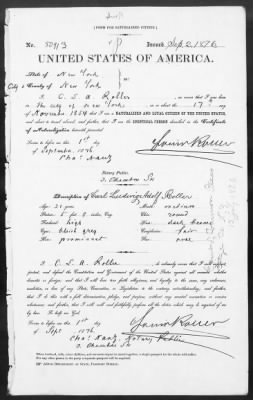 [FORM FOR NATURALIZED CITIZEN.]
No. Issued Sep 2. 1876
UNITED STATES OF AMERICA.
State of New York
City & County of New York
I C. L. A. Roller
the City of New York, on or about the 17
of November 1864 that I am a NATURALIZED AND LOYAL CITIZEN OF THE UNITED STATES,
and about to travel abroad; and further, that I am the IDENTICAL PERSON described in the Certificate
of Naturalization herewith presented.
Sworn to before me this 1st day
of September 1876
Notary Public.
Chambers St
Description of Carl Ludwig Adolf Roller
Age:
Stature: 5 feet 8 inches, Eng.
Forehead: high
Eyes: bluish grey
Nose: prominent
Mouth: medium
Chin: round
Hair: dark brown
Complexion: fair
Face:
I C. L. A. Roller
defend the Constitution and Government of the United States against all enemies, whether
domestic or foreign; and that I will bear true faith, allegiance, and loyalty to the same, any ordinance,
resolution, or law of any State, Convention, or Legislature to the contrary notwithstanding; and further,
that I do this with a full determination, pledge, and purpose, without any mental reservation or evasion
whatsoever; and further, that I will well and faithfully perform all the duties which may be required of me
by law. So help me God.
Sworn to before me this 1st day
of Sept 1876
Notary Public
Chambers St